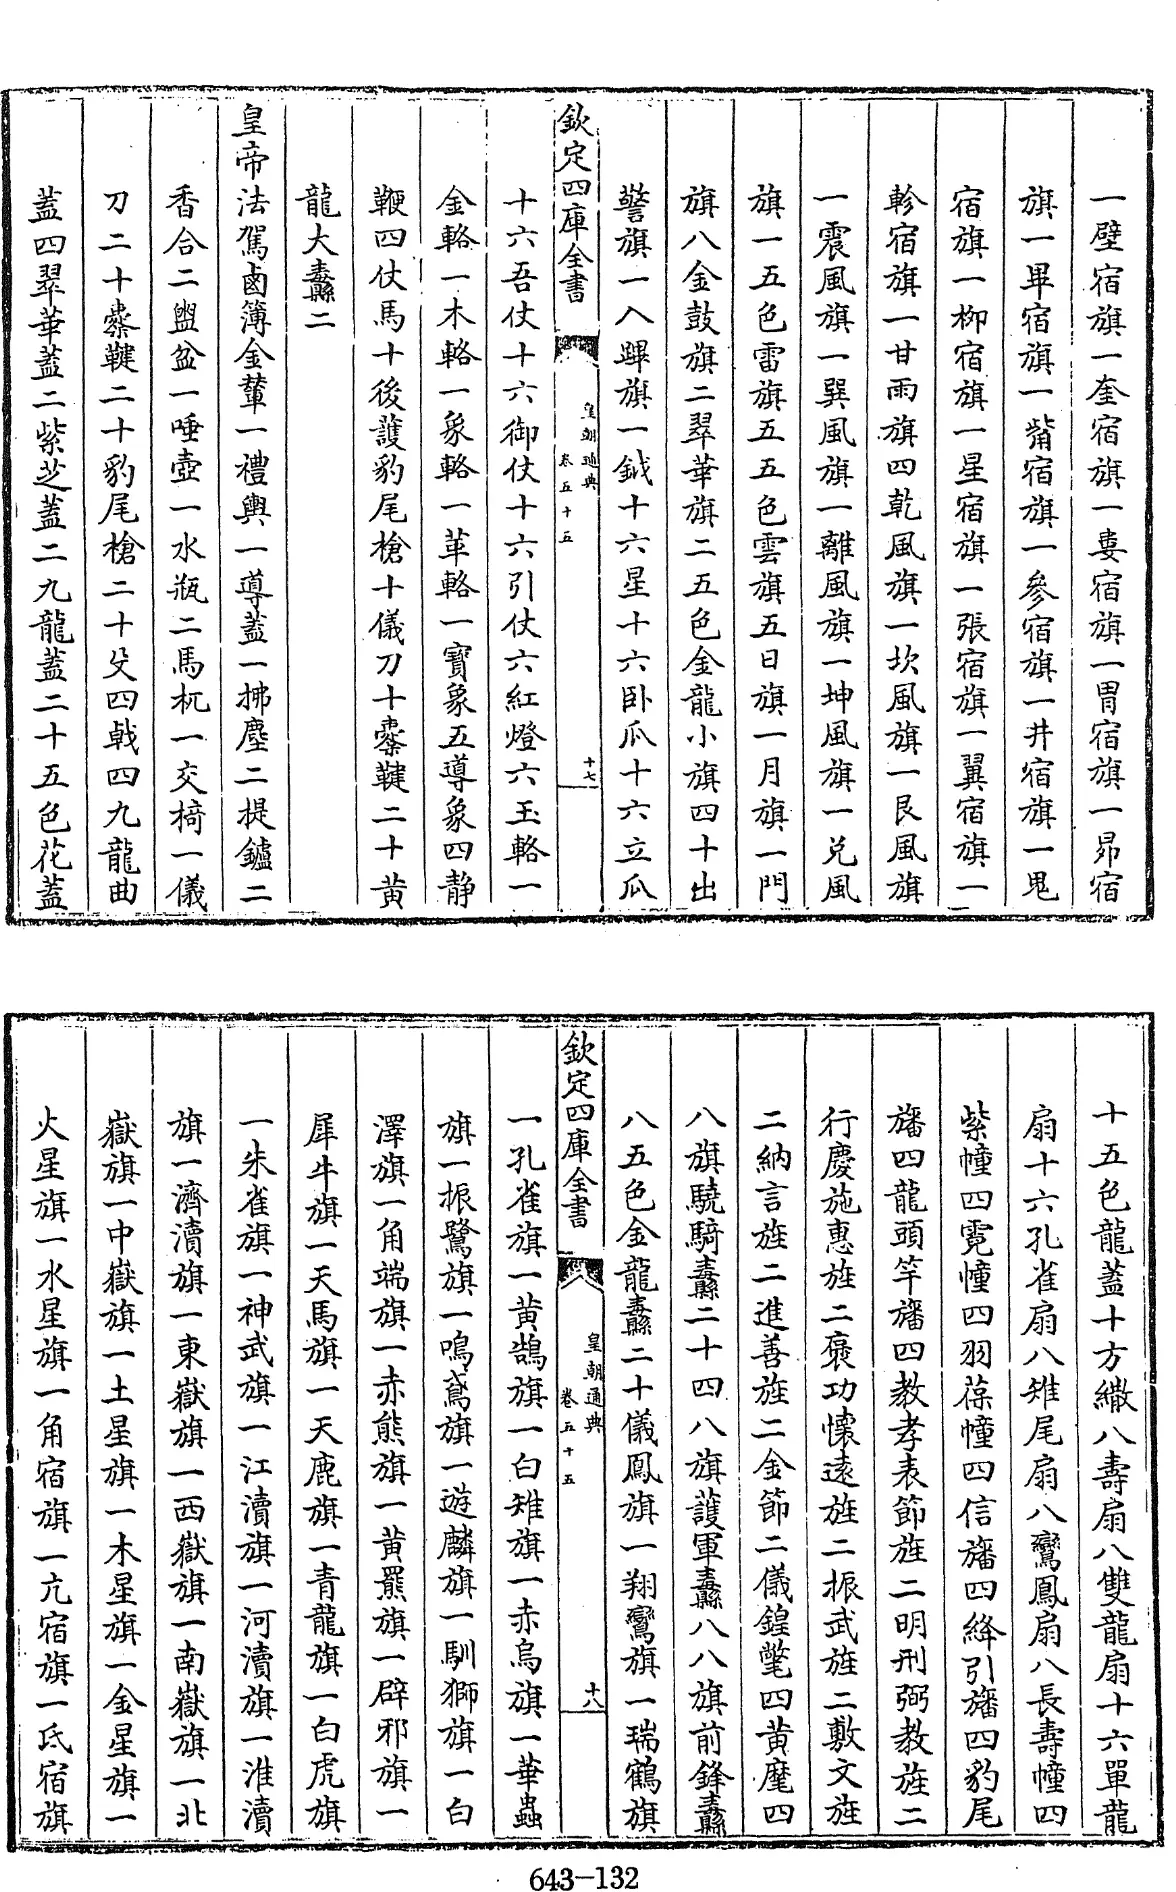 一壁宿旗一奎宿旗一婁宿旗一胃宿旗一昴宿
旗一畢宿旗一觜宿旗一參宿旗一井宿旗一鬼
宿旗一柳宿旗一星宿旗一張宿旗一翼宿旗一
軫宿旗一甘雨旗四乾風旗一坎風旗一艮風旗
一震風旗一巽風旗一離風旗一坤風旗一兌風
旗一五色雷旗五五色雲旗五日旗一月旗一門
旗八金鼓旗二翠華旗二五色金龍小旗四十出
警旗一入蹕旗一鉞十六星十六卧瓜十六立瓜
欽定四庫全書
皇朝通典
卷五十五
十七
十六吾仗十六御仗十六引仗六紅燈六玉輅一
金輅一木輅一象輅一革輅一寶象五導象四靜
鞭四仗馬十後護豹尾槍十儀刀十櫜鞬二十黄
龍大纛二
皇帝法駕鹵簿金輦一禮輿一導蓋一拂塵二提鑪二
香合二盥盆一唾壺一水瓶二馬杌一交椅一儀
刀二十櫜鞬二十豹尾槍二十殳四戟四九龍曲
蓋四翠華蓋二紫芝蓋二九龍蓋二十五色花蓋
十五色龍蓋十方繖八壽扇八雙龍扇十六單龍
扇十六孔雀扇八雉尾扇八鸞鳳扇八長壽幢四
紫幢四霓幢四羽葆幢四信旛四絳引旛四豹尾
旛四龍頭竿旛四教孝表節旌二明刑弼教旌二
行慶施惠旌二褒功懷遠旌二振武旌二敷文旌
二納言旌二進善旌二金節二儀鍠氅四黄麾四
八旗驍騎纛二十四八旗護軍纛八八旗前鋒纛
八五色金龍纛二十儀鳳旗一翔鸞旗一瑞鶴旗
欽定四庫全書
皇朝通典
卷五十五
十八
一孔雀旗一黄鵠旗一白雉旗一赤烏旗一華蟲
旗一振鷺旗一鳴鳶旗一遊麟旗一馴獅旗一白
澤旗一角端旗一赤熊旗一黄羆旗一辟邪旗一
犀牛旗一天馬旗一天鹿旗一青龍旗一白虎旗
一朱雀旗一神武旗一江瀆旗一河瀆旗一淮瀆
旗一濟瀆旗一東嶽旗一西嶽旗一南嶽旗一北
嶽旗一中嶽旗一土星旗一木星旗一金星旗一
火星旗一水星旗一角宿旗一亢宿旗一氐宿旗
643-132